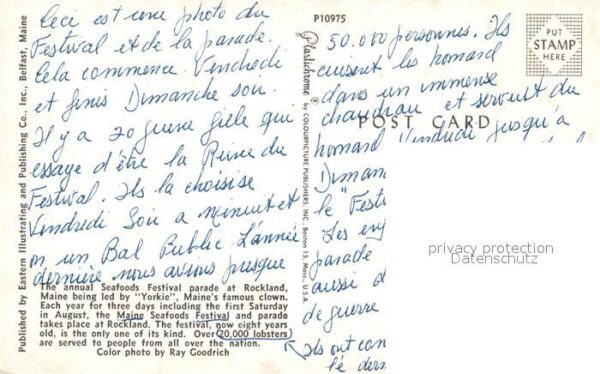 Ceci est une photo du
Festival et de la parade.
Cela commence Vendredi
et finis Dimanche soir.
Il y a 20 jeune fille qui
essaye d'être la Reine du
Festival. Ils la choisise
Vendredi Soir a minuit et
on un Bal Public L'année
dernière nous avions presque
The annual Seafoods Festival parade at Rockland,
Maine being led by "Yorkie", Maine's famous clown.
Each year for three days including the first Saturday
in August, the Maine Seafoods Festival and parade
takes place at Rockland. The festival, now eight years
old, is the only one of its kind. Over 20,000 lobsters
are served to people from all over the nation.
Color photo by Ray Goodrich
Published by Eastern Illustrating and Publishing Co., Inc., Belfast, Maine
P10975
Plastichrome ® by COLOURPICTURE PUBLISHERS, INC. Boston 15, Mass., U.S.A.
PUT
STAMP
HERE
POST CARD
50.000 personnes. Ils
cuisent les homard
dans un immense
chaudrau et servent du
homard Vendredi jusqu'à
Dimanc
le "Festi
Les
parade
aussi d
de guerre
Ils ont
lé dern
privacy protection
Datenschutz